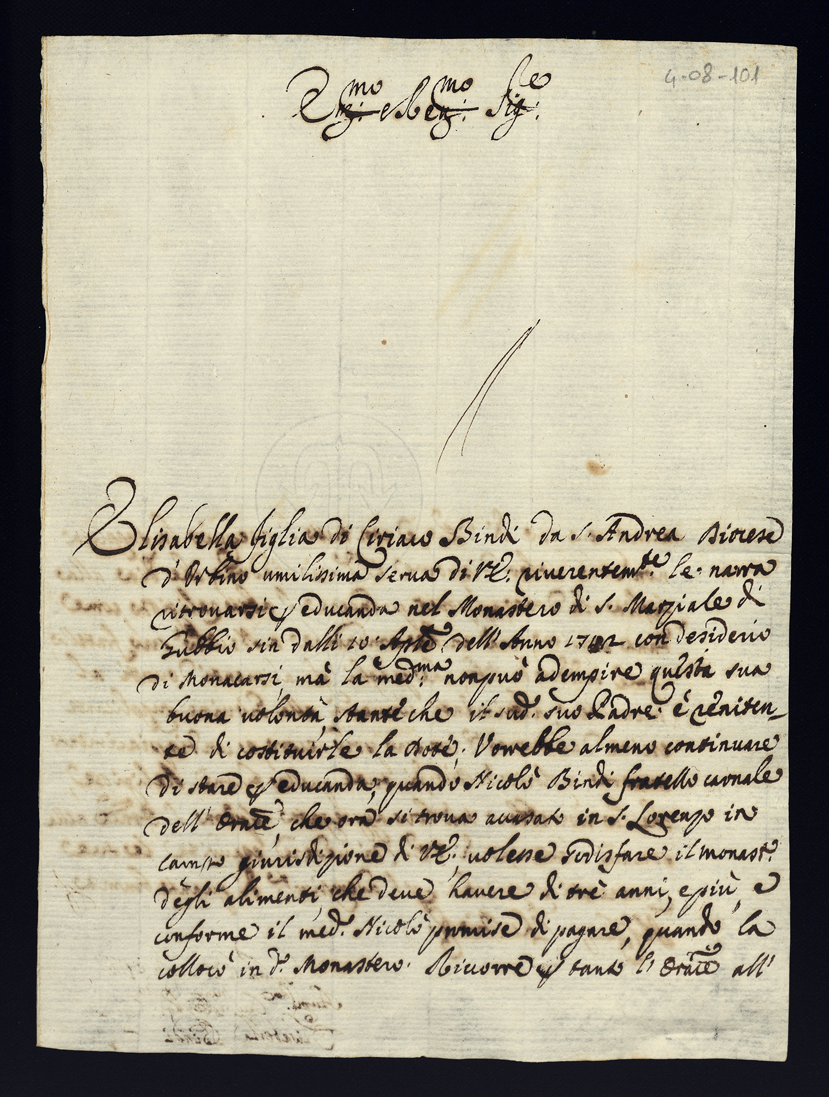 4-08-101
Em:mo e Rev:mo Sig:re
Elisabetta figlia di Ciriaco Bindi da S. Andrea Diocese
d'Urbino umilissima serva di V.E. riverentem:te le narra
ritrovarsi p educanda nel Monastero di S. Marziale di
Gubbio sin dalli 10 Aple dell'Anno 1742 con desiderio
di Monacarsi, mà la med:ma non può adempire questa sua
buona volontà stante che il sud. suo Padre è reniten-
te di costituirle la dote. Vorrebbe almeno continuare
di stare p educanda, quando Nicolò Bindi fratello carnale
dell'Oratce, che ora si trova accasato in S. Lorenzo in
campo giurisdizione di V.E. volesse sodisfare il monast.
degli alimenti, che deve havere di tre anni, e più, e
conforme il med. Nicolò promise di pagare, quando la
collocò in d. Monastero. Ricorre p tanto l'Oratce all'